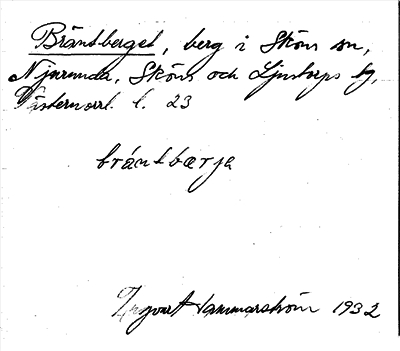 Bräntberget, berg i Sköns sn,
Njurunda, Sköns och Ljustorps tg,
Västernorrl. l. 23
bräntbærja
Ingvart Hammarström 1932